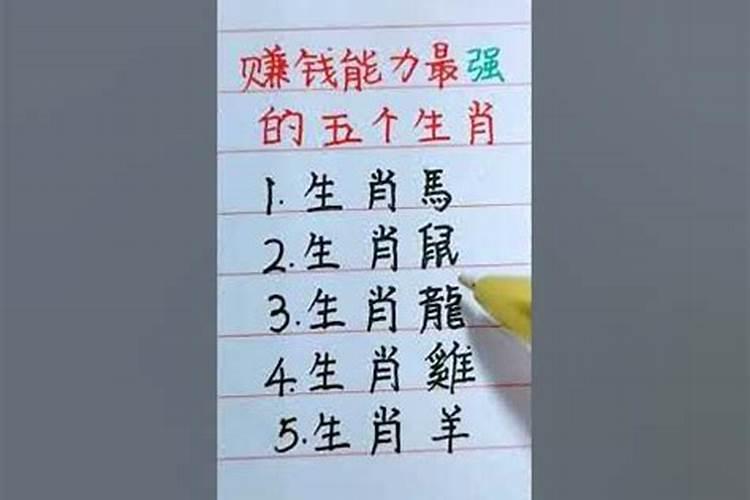 赚钱能力最强
的五个生肖
1.生肖馬
2.生肖鼠
3.生肖龍
4.生肖雞
5.生肖羊